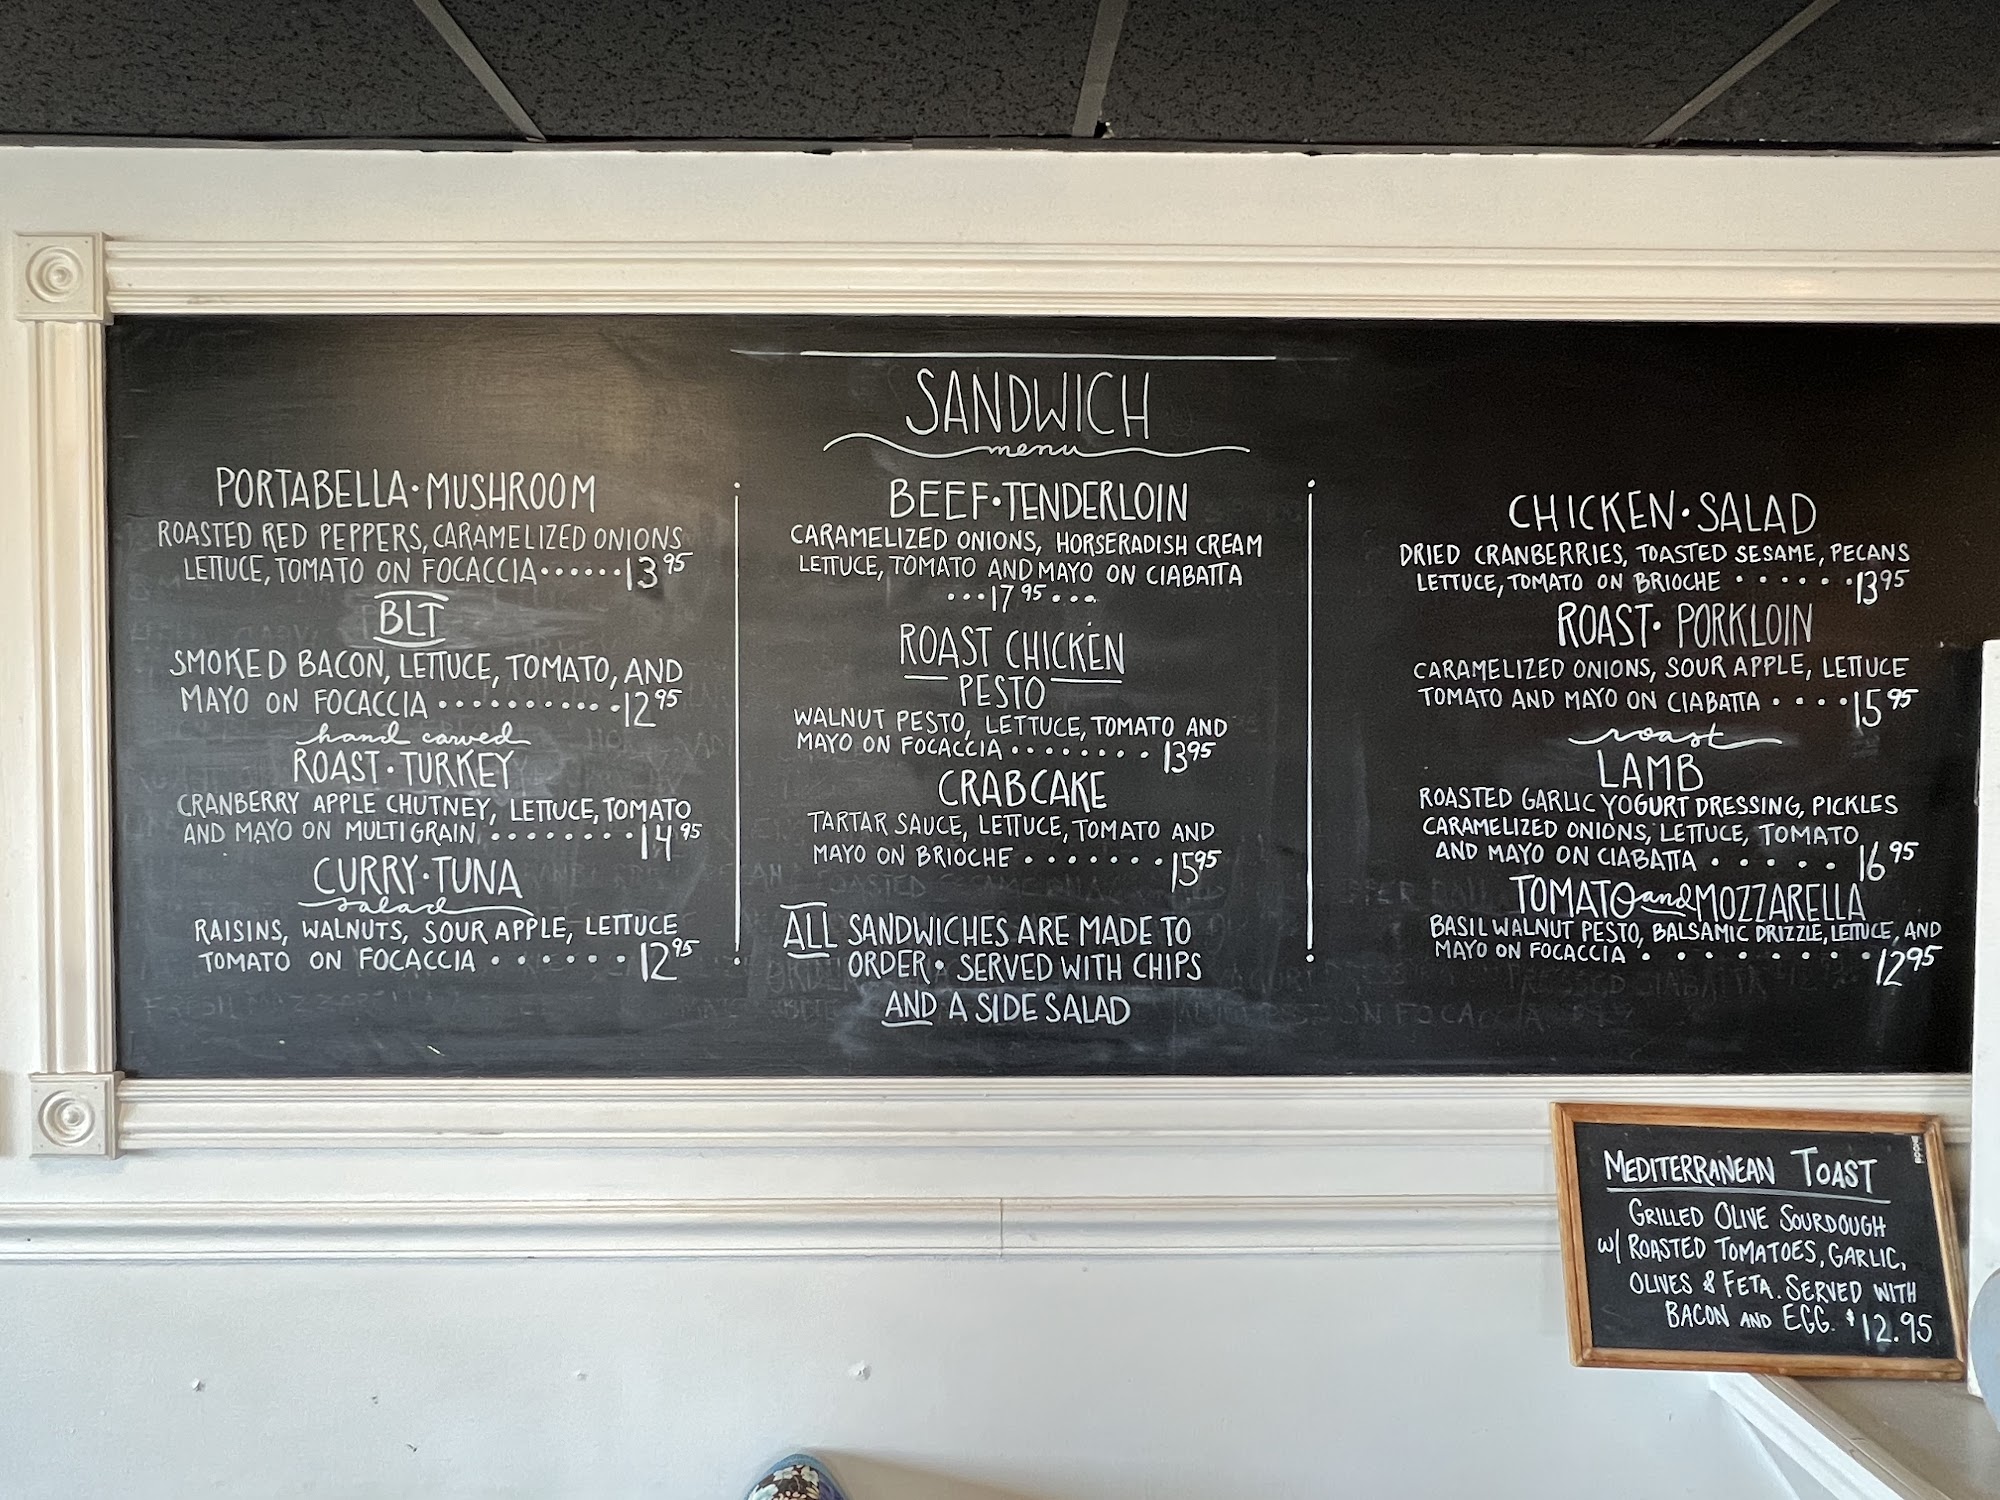 SANDWICH
menu
PORTABELLA · MUSHROOM
ROASTED RED PEPPERS, CARAMELIZED ONIONS
LETTUCE, TOMATO ON FOCACCIA ······ 13 95
BLT
SMOKED BACON, LETTUCE, TOMATO, AND
MAYO ON FOCACCIA ··········· 12 95
hand carved
ROAST · TURKEY
CRANBERRY APPLE CHUTNEY, LETTUCE, TOMATO
AND MAYO ON MULTIGRAIN ········ 14 95
CURRY · TUNA
salad
RAISINS, WALNUTS, SOUR APPLE, LETTUCE
TOMATO ON FOCACCIA ······ 12 95
BEEF · TENDERLOIN
CARAMELIZED ONIONS, HORSERADISH CREAM
LETTUCE, TOMATO AND MAYO ON CIABATTA
··· 17 95 ···
ROAST CHICKEN
PESTO
WALNUT PESTO, LETTUCE, TOMATO AND
MAYO ON FOCACCIA ········ 13 95
CRABCAKE
TARTAR SAUCE, LETTUCE, TOMATO AND
MAYO ON BRIOCHE ······· 15 95
ALL SANDWICHES ARE MADE TO
ORDER · SERVED WITH CHIPS
AND A SIDE SALAD
CHICKEN · SALAD
DRIED CRANBERRIES, TOASTED SESAME, PECANS
LETTUCE, TOMATO ON BRIOCHE ······ 13 95
ROAST · PORKLOIN
CARAMELIZED ONIONS, SOUR APPLE, LETTUCE
TOMATO AND MAYO ON CIABATTA ···· 15 95
roast
LAMB
ROASTED GARLIC YOGURT DRESSING, PICKLES
CARAMELIZED ONIONS, LETTUCE, TOMATO
AND MAYO ON CIABATTA ····· 16 95
TOMATO and MOZZARELLA
BASIL WALNUT PESTO, BALSAMIC DRIZZLE, LETTUCE, AND
MAYO ON FOCACCIA ········ 12 95
MEDITERRANEAN TOAST
GRILLED OLIVE SOURDOUGH
W/ ROASTED TOMATOES, GARLIC,
OLIVES & FETA. SERVED WITH
BACON AND EGG. $12.95